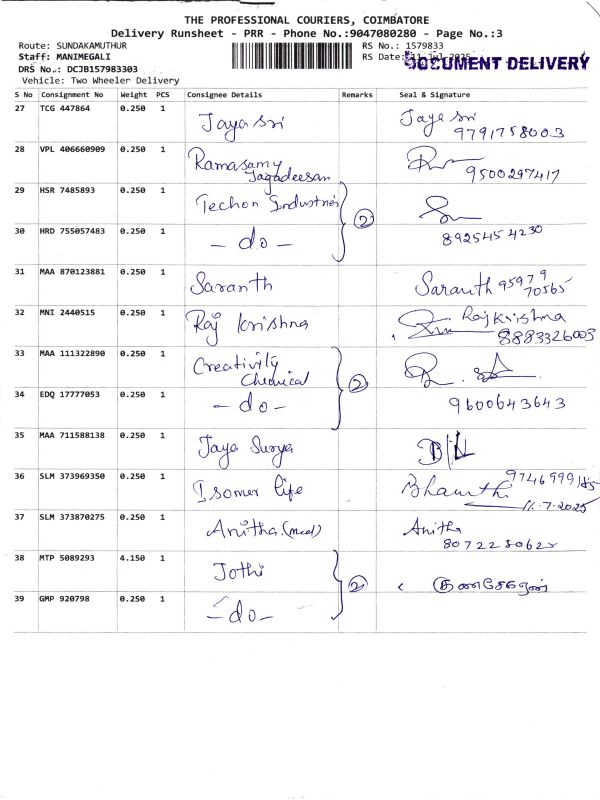 THE PROFESSIONAL COURIERS, COIMBATORE
Delivery Runsheet - PRR - Phone No.:9047080280 - Page No.:3
Route: SUNDAKAMUTHUR
RS No.: 1579833
Staff: MANIMEGALI
RS Date:11-Jul-2025
DOCUMENT DELIVERY
DRS No.: DCJB157983303
Vehicle: Two Wheeler Delivery
S No Consignment No Weight PCS Consignee Details Remarks Seal & Signature
27 TCG 447864 0.250 1 Jaya Sri Jaya Sri
9791758003
28 VPL 406660909 0.250 1 Ramasamy
Jagadeesan 9500297417
29 HSR 7485893 0.250 1 Techon Industries 2
30 HRD 755057483 0.250 1 - do - 8925454230
31 MAA 870123881 0.250 1 Saranth Saranth 95979
70565
32 MNI 2440515 0.250 1 Raj Krishna Raj Krishna
8883326003
33 MAA 111322890 0.250 1 Creativity
Chemical 2
34 EDQ 17777053 0.250 1 - do - 9600643643
35 MAA 711588138 0.250 1 Jaya Surya
36 SLM 373969350 0.250 1 Isomer life
11.7.2025
37 SLM 373870275 0.250 1 Anitha (med) Anitha
38 MTP 5089293 4.150 1 Jothi 2 குணசேகரன்
39 GMP 920798 0.250 1 - do -